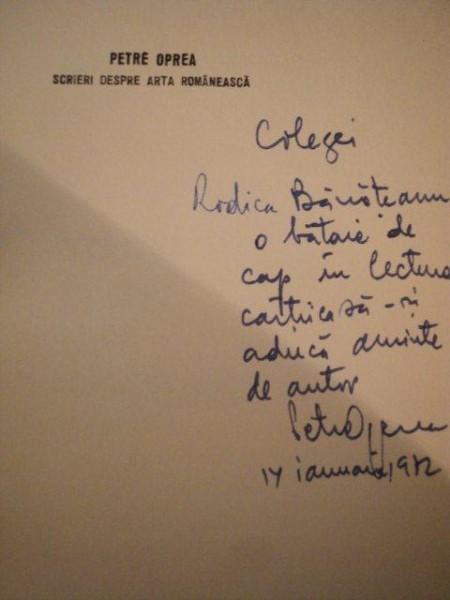 PETRE OPREA
SCRIERI DESPRE ARTA ROMÂNEASCĂ
Colegei
Rodica Bănățeanu
o bătaie de
cap în lectura
să-și
aducă aminte
de autor
Petre Oprea
14 ianuarie